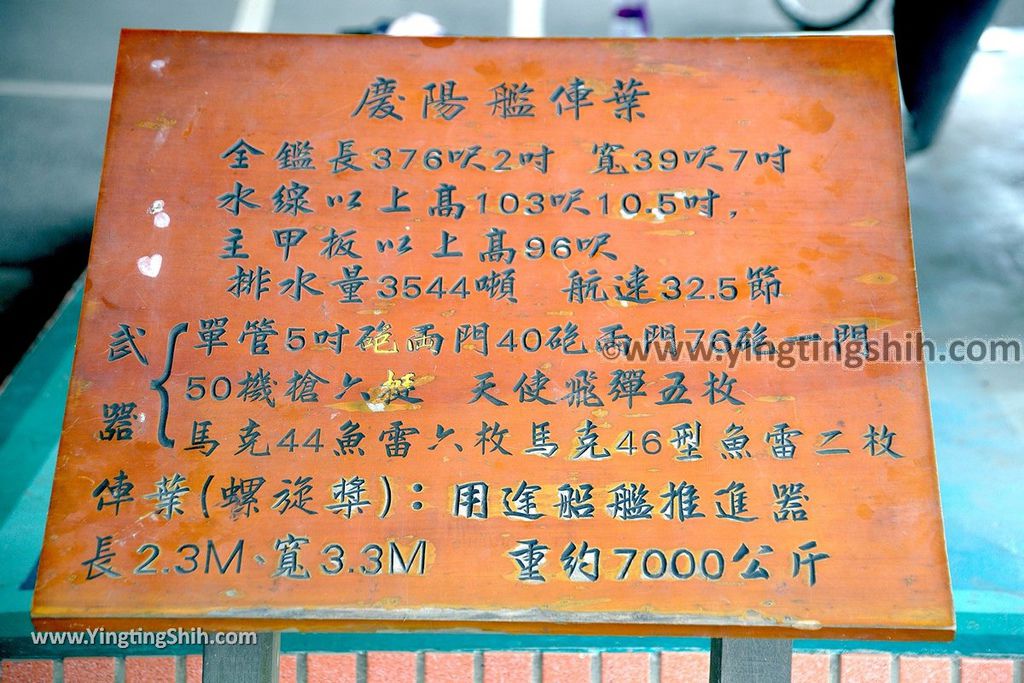 慶陽艦俥葉
全鑑長376呎2吋 寬39呎7吋
水線以上高103呎10.5吋,
主甲板以上高96呎
排水量3544噸 航速32.5節
武器
單管5吋砲兩門40砲兩門76砲一門
50機槍六挺 天使飛彈五枚
馬克44魚雷六枚馬克46型魚雷二枚
俥葉(螺旋槳):用途船艦推進器
長2.3M、寬3.3M 重約7000公斤
©www.yingtingshih.com
www.YingtingShih.com